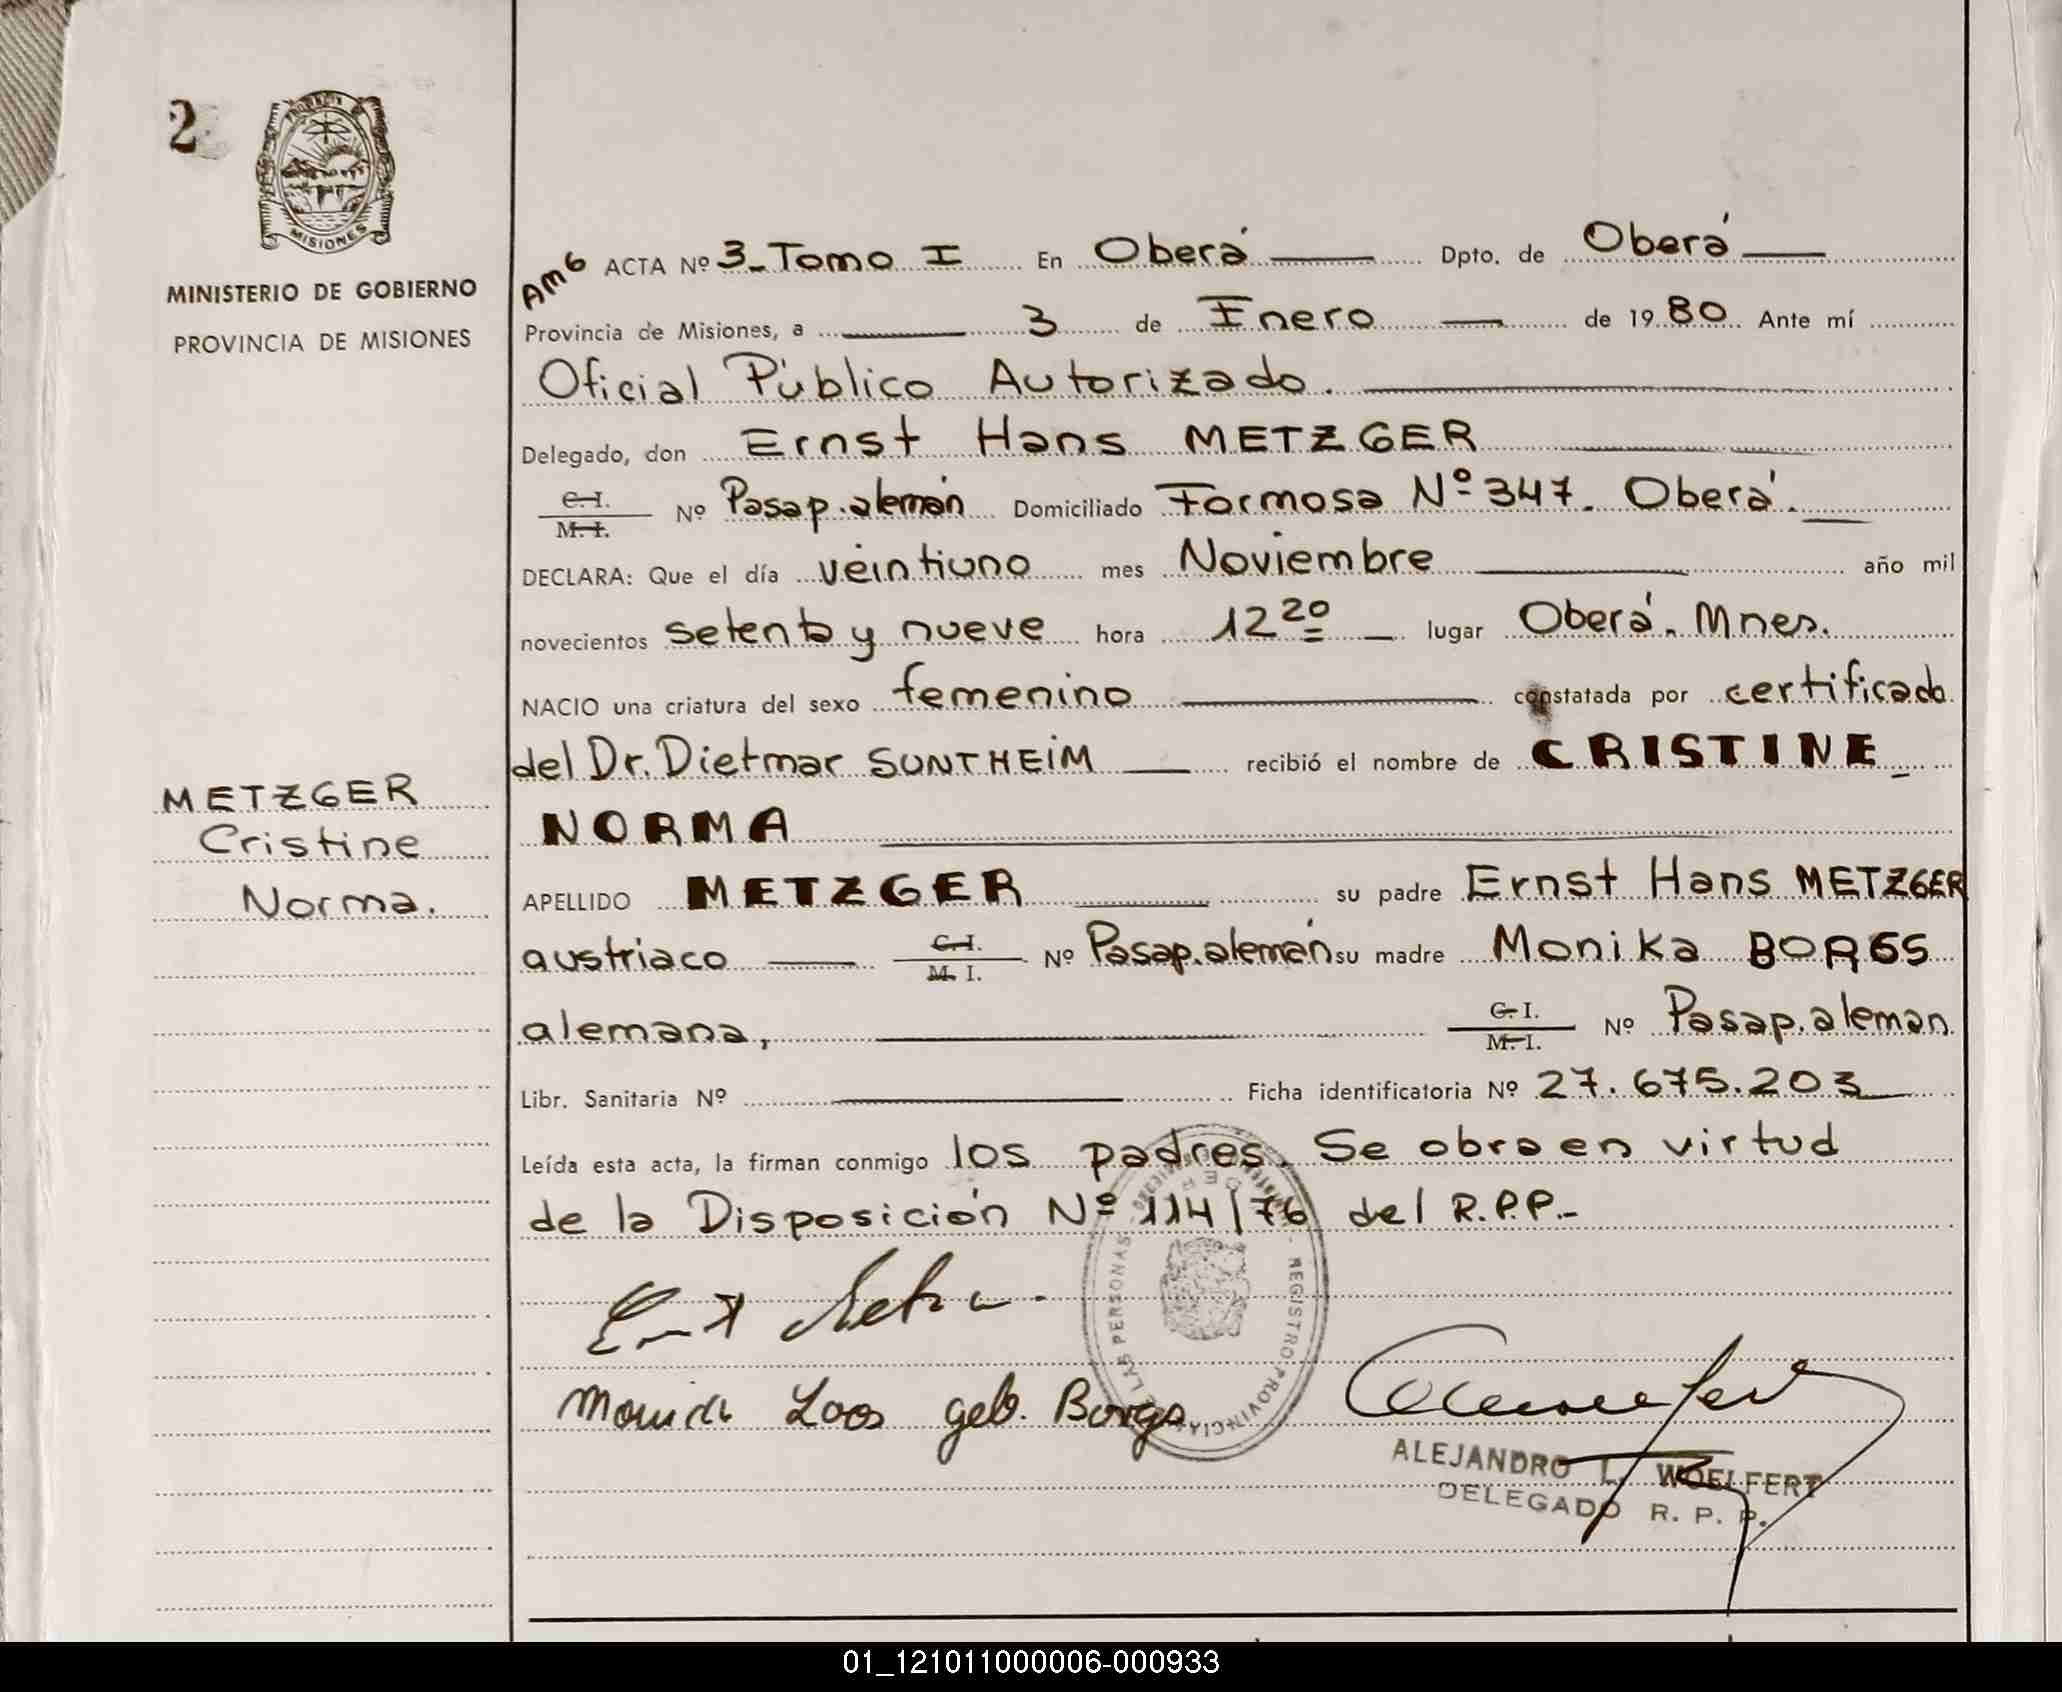 2
MISIONES
MINISTERIO DE GOBIERNO
PROVINCIA DE MISIONES
METZGER
Cristine
Norma.
AM6 ACTA Nº 3_ Tomo I En Oberá Dpto. de Oberá
Provincia de Misiones, a 3 de Enero de 1980 Ante mí
Oficial Público Autorizado.
Delegado, don Ernst Hans METZGER
C.I. M.I. Nº Pasap. alemán Domiciliado Formosa Nº 347. Oberá.
DECLARA: Que el día veintiuno mes Noviembre año mil
novecientos setenta y nueve hora 12 20 lugar Oberá. Mnes.
NACIO una criatura del sexo femenino constatada por certificado
del Dr. Dietmar SUNTHEIM recibió el nombre de CRISTINE
NORMA
APELLIDO METZGER su padre Ernst Hans METZGER
austriaco C.I. M.I. Nº Pasap. alemán su madre Monika BORGS
alemana, C.I. M.I. Nº Pasap. aleman
Libr. Sanitaria Nº Ficha identificatoria Nº 27.675.203
Leída esta acta, la firman conmigo los padres. Se obra en virtud
de la Disposición Nº 114/76 del R.P.P.-
REGISTRO PROVINCIAL DE LAS PERSONAS
Monika Loos geb. Borgs
ALEJANDRO L. WOELFERT
DELEGADO R. P. P.
01_121011000006-000933